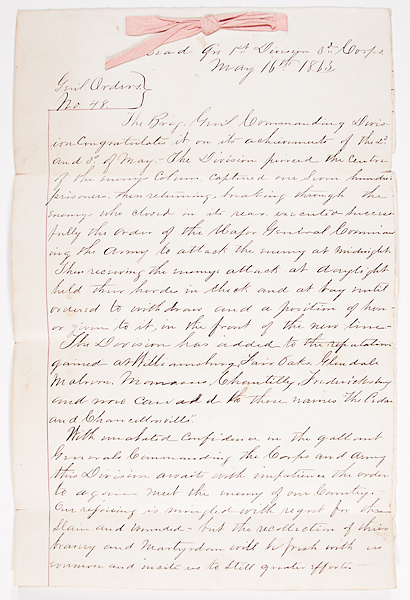 Head Qrs 1st Division 3d Corps
May 16th 1863
Genl Orders
No 48
The Brig. Genl Commanding Divis-
ion Congratulates it on its achievments of the 2d
and 3d of May - The Division pierced the Center
of the enemys Column captured one
prisoners then returning, breaking through the
enemy who closed on its rear executed success
fully the order of the Major General Comman
ing the Army to attack the enemy at midnight
Then receiving the enemys attack at daylight
held their hordes in check and at bay until
ordered to withdraw and a position of hon-
or given to it, in the front of the new line -
The Division has added to the reputation
gained at Williamsburg, Fair Oaks, Glendale
Malvern, Manassas, Chantilly Fredericksburg
and now can add to those names "The Cedars
and Chancellorsville".
With unabated Confidence in the gallant
Generals Commanding the Corps and Army
this Division awaits with impatience the order
to again meet the enemy of our Country.
Our rejoicing is mingled with regret for the
Slain and wounded - but the recollection of their
bravery and Martyrdom will be fresh with us
and incite us to still greater efforts -